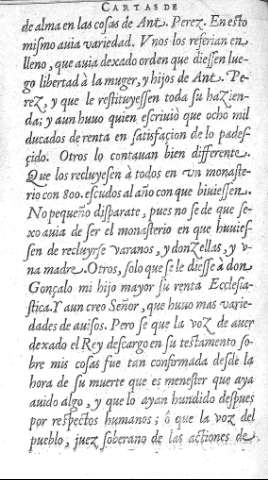 CARTAS DE
de alma en las cosas de Ant. Perez. En esto
mismo auia variedad. Vnos los referian en
lleno, que auia dexado orden que diessen lue-
go libertad à la muger, y hijos de Ant. Pe-
rez, y que le restituyessen toda su hazien-
da; y aun huuo quien escriuiò que ocho mil
ducados de renta en satisfaçion de lo pades-
çido. Otros lo contauan bien differente.
Que los recluyesen à todos en vn monaste-
rio con 800. escudos al año con que biuiessen.
No pequeño disparate, pues no se de que se-
xo auia de ser el monasterio en que huuies-
sen de recluyrse varanos, y donzellas, y v-
na madre. Otros, solo que se le diesse à don
Gonçalo mi hijo mayor su renta Ecclesia-
stica. Y aun creo Señor, que huuo mas varie-
dades de auisos. Pero se que la voz de auer
dexado el Rey descargo en su testamento so-
bre mis cosas fue tan confirmada desde la
hora de su muerte que es menester que aya
auido algo, y que lo ayan hundido despues
por respectos humanos; ó que la voz del
pueblo, juez soberano de las actiones de